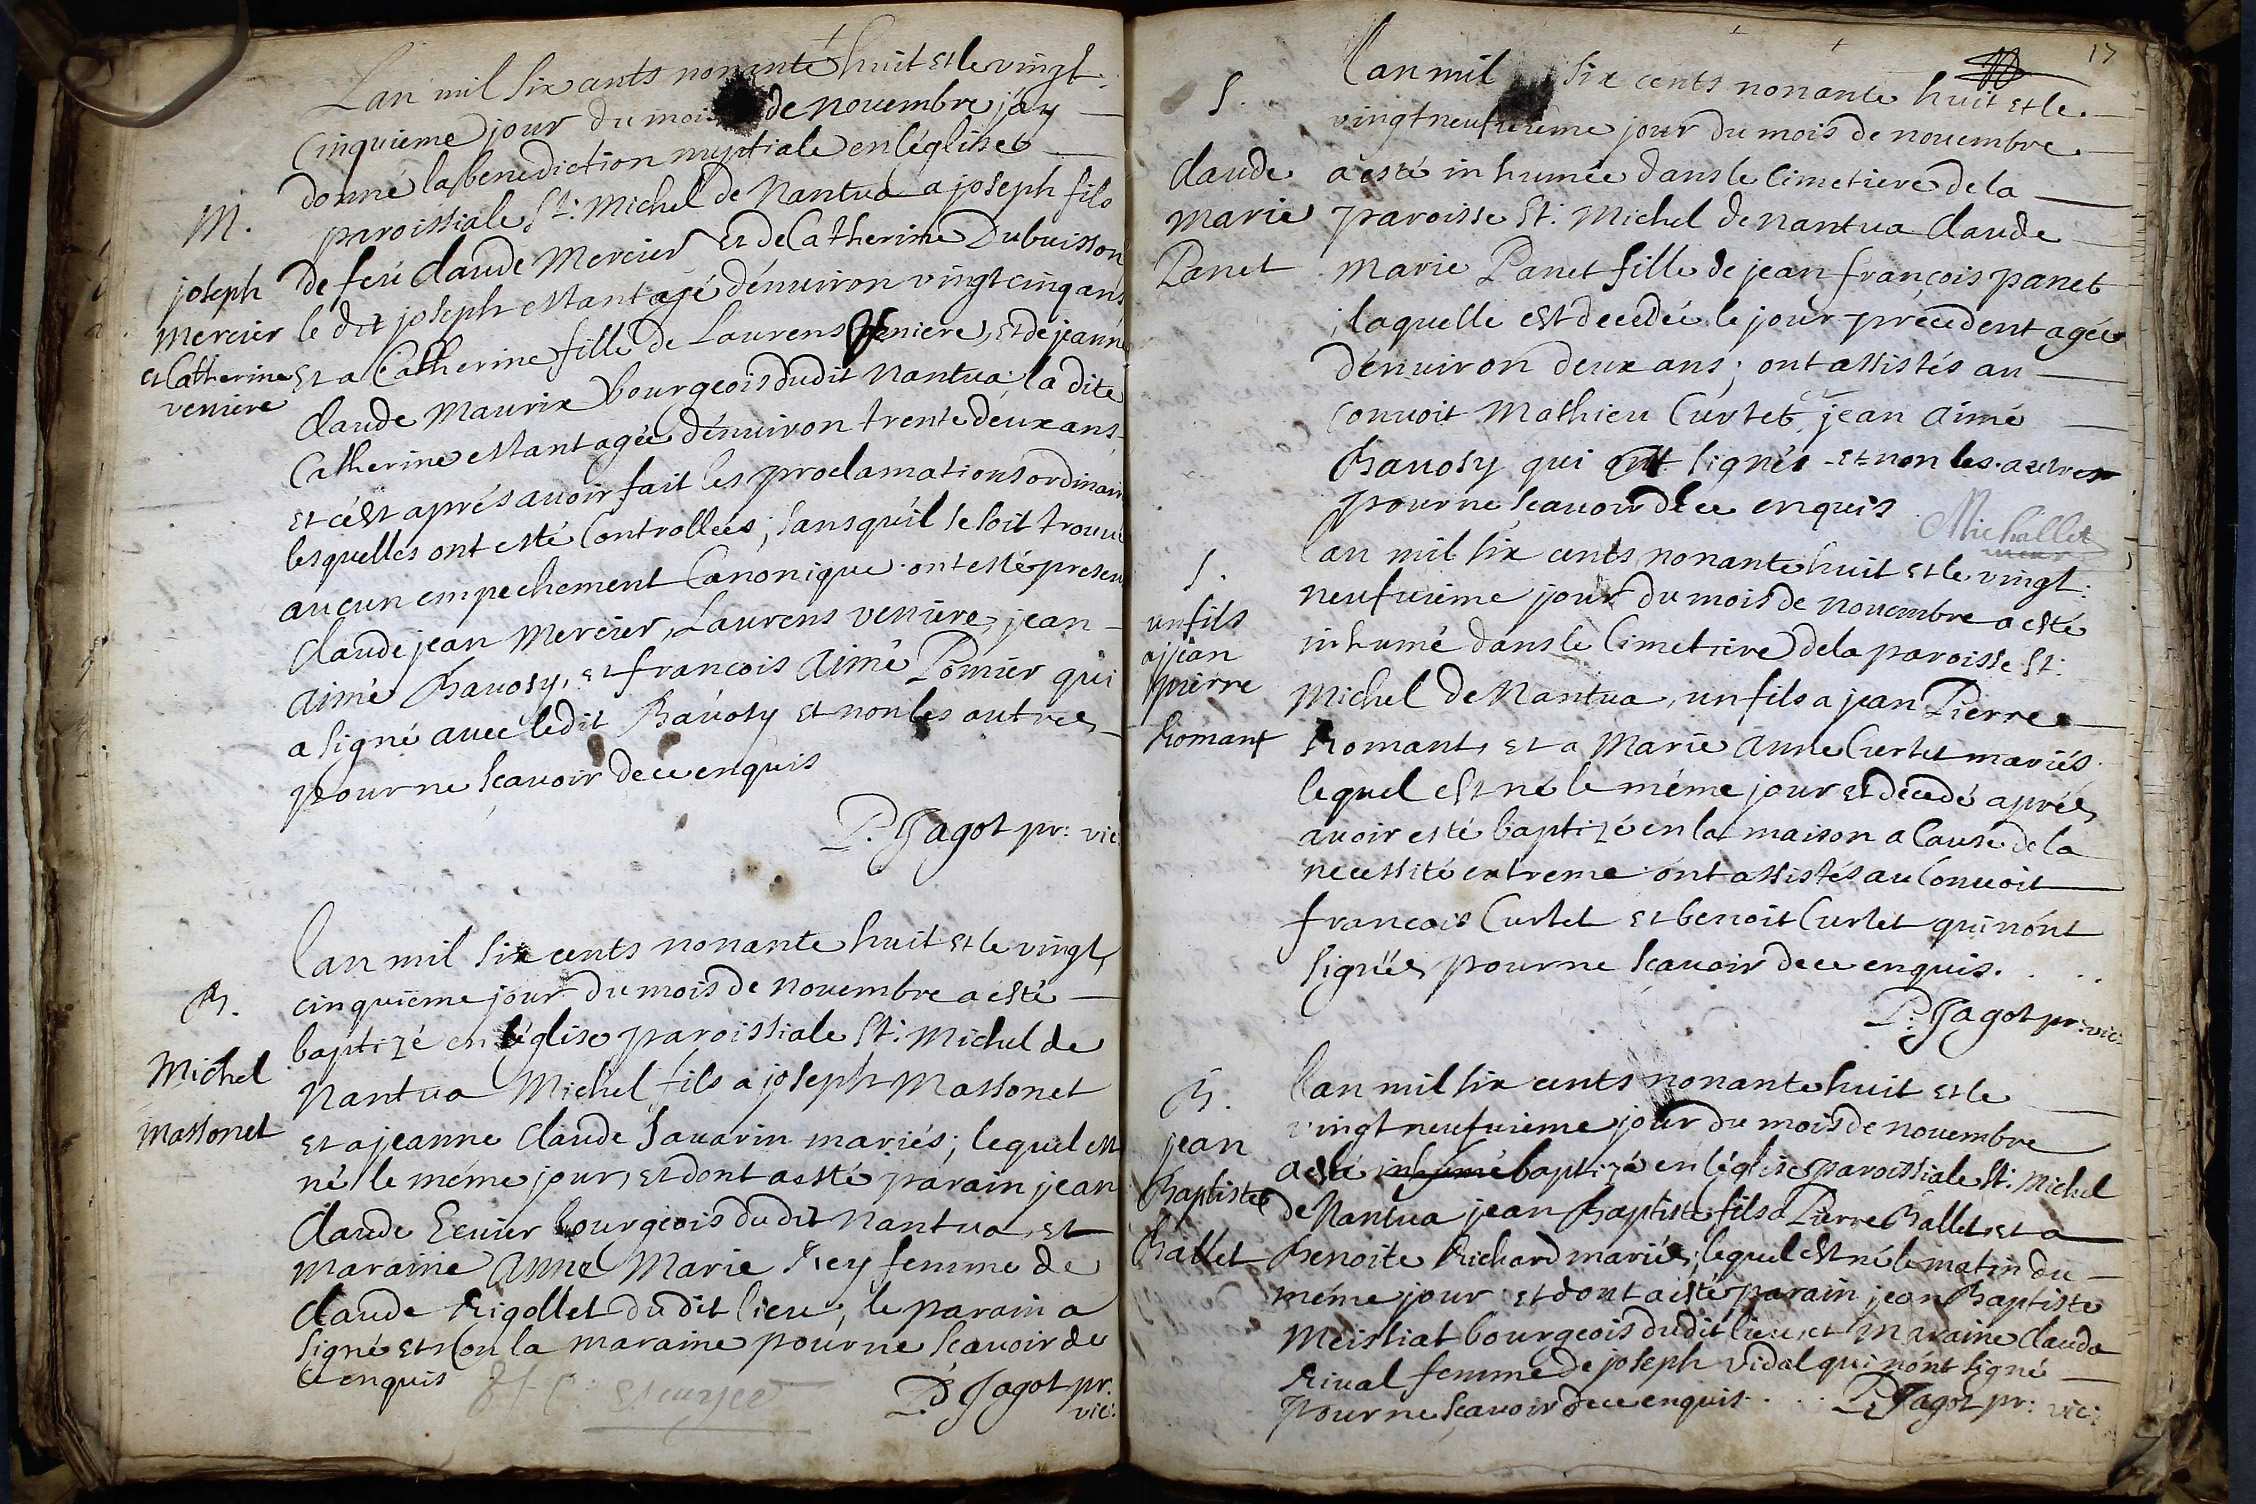 Lan mil six cents nonante huit et le vingt
cinquieme jour du mois de novembre jay
donné la benediction nuptiale en léglise
M. paroissiale St: Michel de Nantua a joseph fils
joseph de feu claude Mercier et de Catherine Dubuisson
Mercier le dit joseph estant agé dénuiron vingt cinq ans
et Catherine et a Catherine fille de Laurens veniere, et de jeanne
veniere claude Maurix bourgeois dudit Nantua la dite
Catherine estant agée dénuiron trente deux ans
et cést aprés auoir fait les proclamations ordinair
lesquelles ont esté Controllées, sans quíl se soit trouué
aucun empechement Canonique ont esté presen
claude jean Mercier, Laurens veniere, jean
aimé Bauosy, et francois aimé Pomier qui
a signé auec ledit Bauosy et non les autres
pour ne scauoir de ce enquis
P. Jagot pr: vic:
lan mil six cents nonante huit et le vingt
B. cinquieme jour du mois de nouembre a esté
baptizé en léglise paroissiale St: Michel de
Michel Nantua Michel fils a joseph Massonet
Massonet et a jeanne claude Sauarin mariés; lequel est
né le méme jour, et dont a esté parain jean
claude Ecuier bourgeois dudit Nantua, et
maraine anne Marie Rey femme de
claude Rigollet dudit lieu, le parain a
signé et non la maraine pour ne scauoir de
ce enquis
P. Jagot pr. vic:
17
lan mil six cents nonante huit et le
S. vingt neufuieme jour du mois de nouembre
claude a esté inhumée dans le Cimetiere de la
marie paroisse St: Michel de Nantua claude
Panet Marie Panet fille de jean françois panet
laquelle est decedée le jour précedent agée
dénuiron deux ans; ont assistés au
conuoit Mathieu Curtet, jean aimé
Bauosy qui ont signés et non les autres
pour ne scauoir de ce enquis
Michallet
lan mil six cents nonante huit et le vingt
S. neufuieme jour du mois de nouembre a esté
un fils inhumé dans le Cimetiere de la paroisse St:
a jean Michel de Nantua, un fils a jean Pierre
pierre Romant, et a Marie anne Curtet mariés
Romant lequel est né le méme jour et decedé aprés
auoir esté baptizé en la maison a Cause de la
necessité extreme ont assistés au Conuoit
francois Curtet et benoit Curtet qui nónt
signés pour ne scauoir de ce enquis.
P. Jagot pr: vic:
B. lan mil six cents nonante huit et le
jean vingt neufuieme jour du mois de nouembre
Baptiste a esté inhumé baptizé en léglise paroissiale St: Michel
Ballet de Nantua jean Baptiste fils a Pierre Ballet, et a
Benoite Richard mariés, lequel est né le matin du
méme jour et dont a esté parain jean Baptiste
Meistiat bourgeois dudit lieu, et maraine clauda
Riual femme de joseph vidal qui nónt signé
pour ne scauoir de ce enquis. P. Jagot pr: vic: